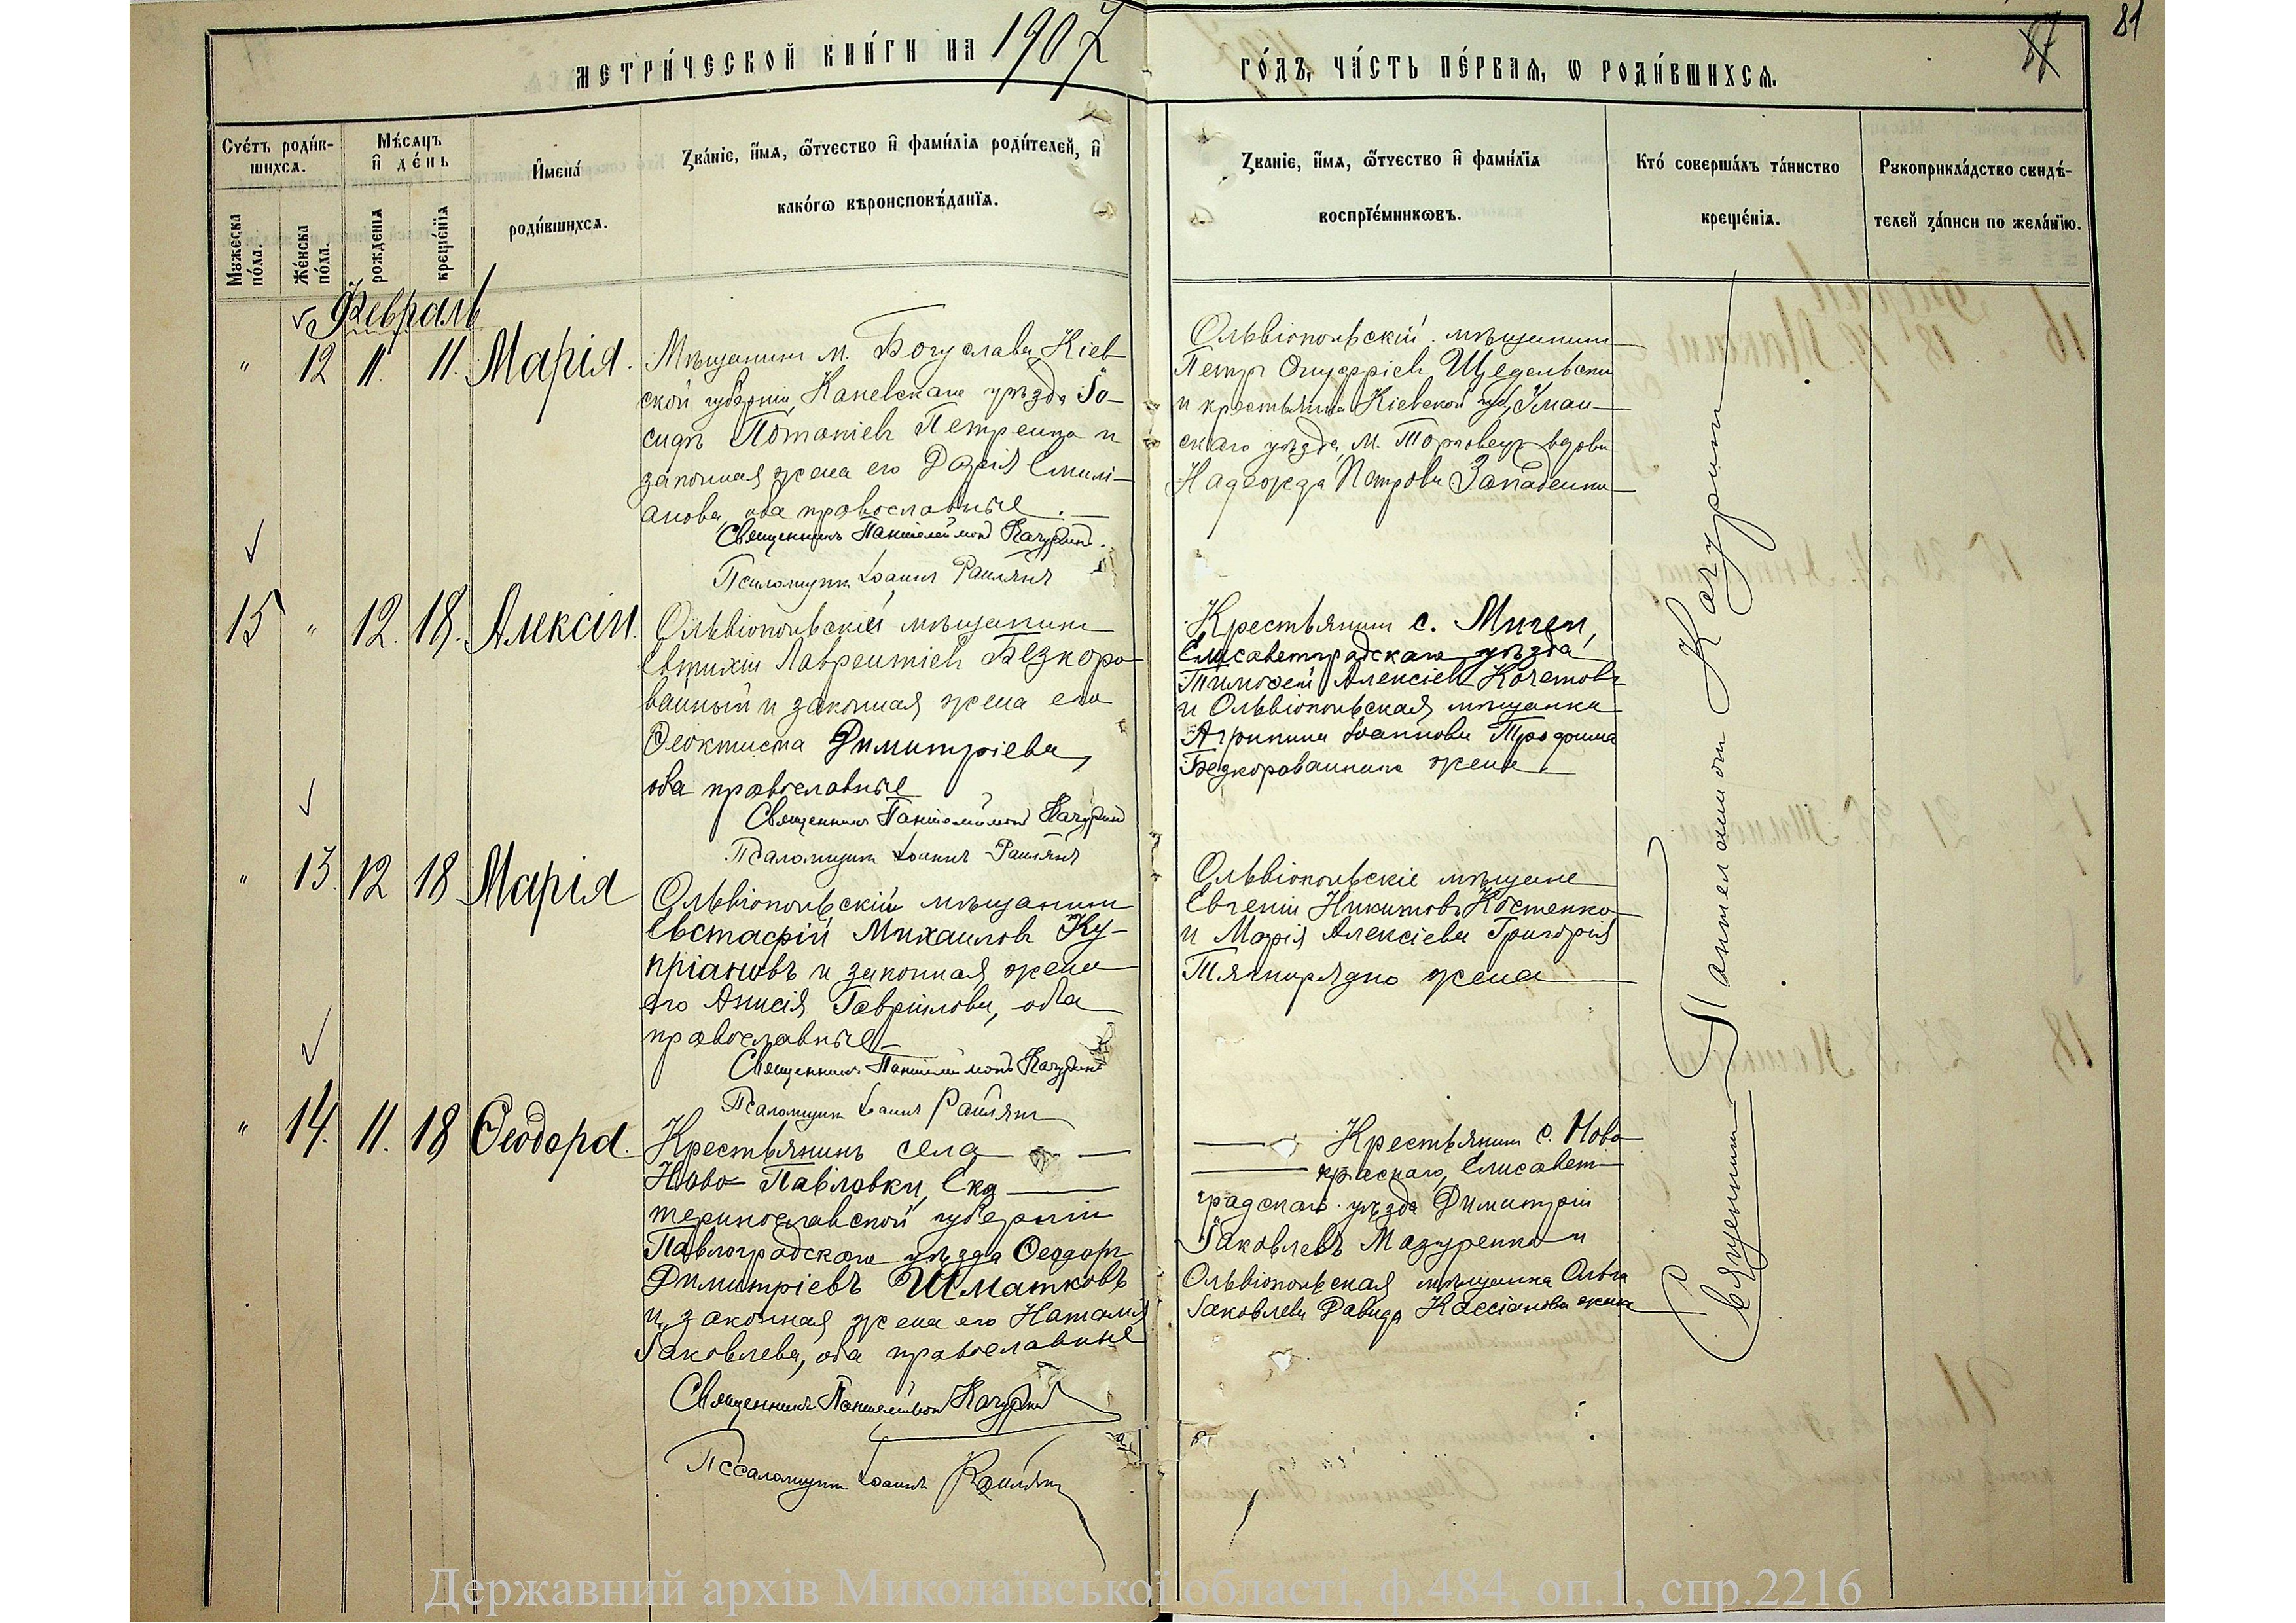 81
87
МЕТРИ́ЧЕСКОЙ КНИ́ГИ НА 1907
ГО́ДЪ, ЧА́СТЬ ПЕ́РВАЯ, Ѡ РОДИ́ВШИХСЯ.
Сче́тъ роди́в-
шихся.
Мѣ́сяцъ
и҆ де́нь
Мꙋжеска
по́ла.
Же́нска
по́ла.
рожденїя
креще́нїя
И҆мена̀
роди́вшихся.
Зва́нїе, и҆́мя, ѻ҆́тчество и҆ фами́лїя роди́телей, и҆
како́гѡ вѣроисповѣ́данїя.
Зва́нїе, и҆́мя, ѻ҆́тчество и҆ фами́лїя
воспрїе́мникѡвъ.
Кто̀ соверша́лъ та́инство
креще́нїя.
Рꙋкоприкла́дство свидѣ́-
телей за́писи по жела́нїю.
Февраль
" 12 11. 11. Марія.
Мѣщанинъ м. Богуслава, Кіев
ской губерніи, Каневскаго уѣзда Іо-
сифъ Потапіевъ Петренко и
законная жена его Дарія Емилі-
анова, оба православные.
Священникъ Пантелеймонъ Качуринъ.
Псаломщикъ Іоаннъ Раилянъ
Ольвіопольскій мѣщанинъ
Петръ Онуфріевъ
и крестьянка Кіевской губ, Уман-
скаго уѣзда, м. Торговецъ вдова
Надежда Петрова Западенко
15 " 12. 18. Алексій.
Ольвіопольскій мѣщанинъ
Евтихій Лаврентіевъ Безкоро
вайный и законная жена его
Ѳеоктиста Димитріева,
оба православные
Священникъ Пантелеймонъ Качуринъ
Псаломщикъ Іоаннъ Раилянъ
Крестьянинъ с. Мигеи,
Елисаветградскаго уѣзда
Тимоѳей Алексіевъ Кочетовъ
и Ольвіопольская мѣщанка
Агрипина Іоаннова Трофима
Безкороваинаго жена.
" 13. 12 18 Марія
Ольвіопольскій мѣщанинъ
Евстафій Михаиловъ Ку-
пріановъ и законная жена
его Анисія Гавріилова, оба
православные
Священникъ Пантелеймонъ Качуринъ
Псаломщикъ Іоаннъ Раилянъ
Ольвіопольскіе мѣщане
Евгеній Никитовъ Костенко
и Марія Алексіева Григорія
жена
" 14. 11. 18 Ѳеодора.
Крестьянинъ села
Ново-Павловки, Ека
теринославской губерніи
Павлоградскаго уѣзда Ѳеодоръ
Димитріевъ Шматковъ
и законная жена его Наталія
Іаковлева, оба православные
Священникъ Пантелеймонъ Качуринъ
Псаломщикъ Іоаннъ Раилянъ
Крестьянинъ с. Ново
краснаго, Елисавет
градскаго уѣзда Димитрій
Іаковлевъ Мазуренко и
Ольвіопольская мѣщанка Ольга
Іаковлева Давида Кассіанова жена
Священникъ Пантелеимонъ Качуринъ
Державний архів Миколаївської області, ф.484, оп.1, спр.2216